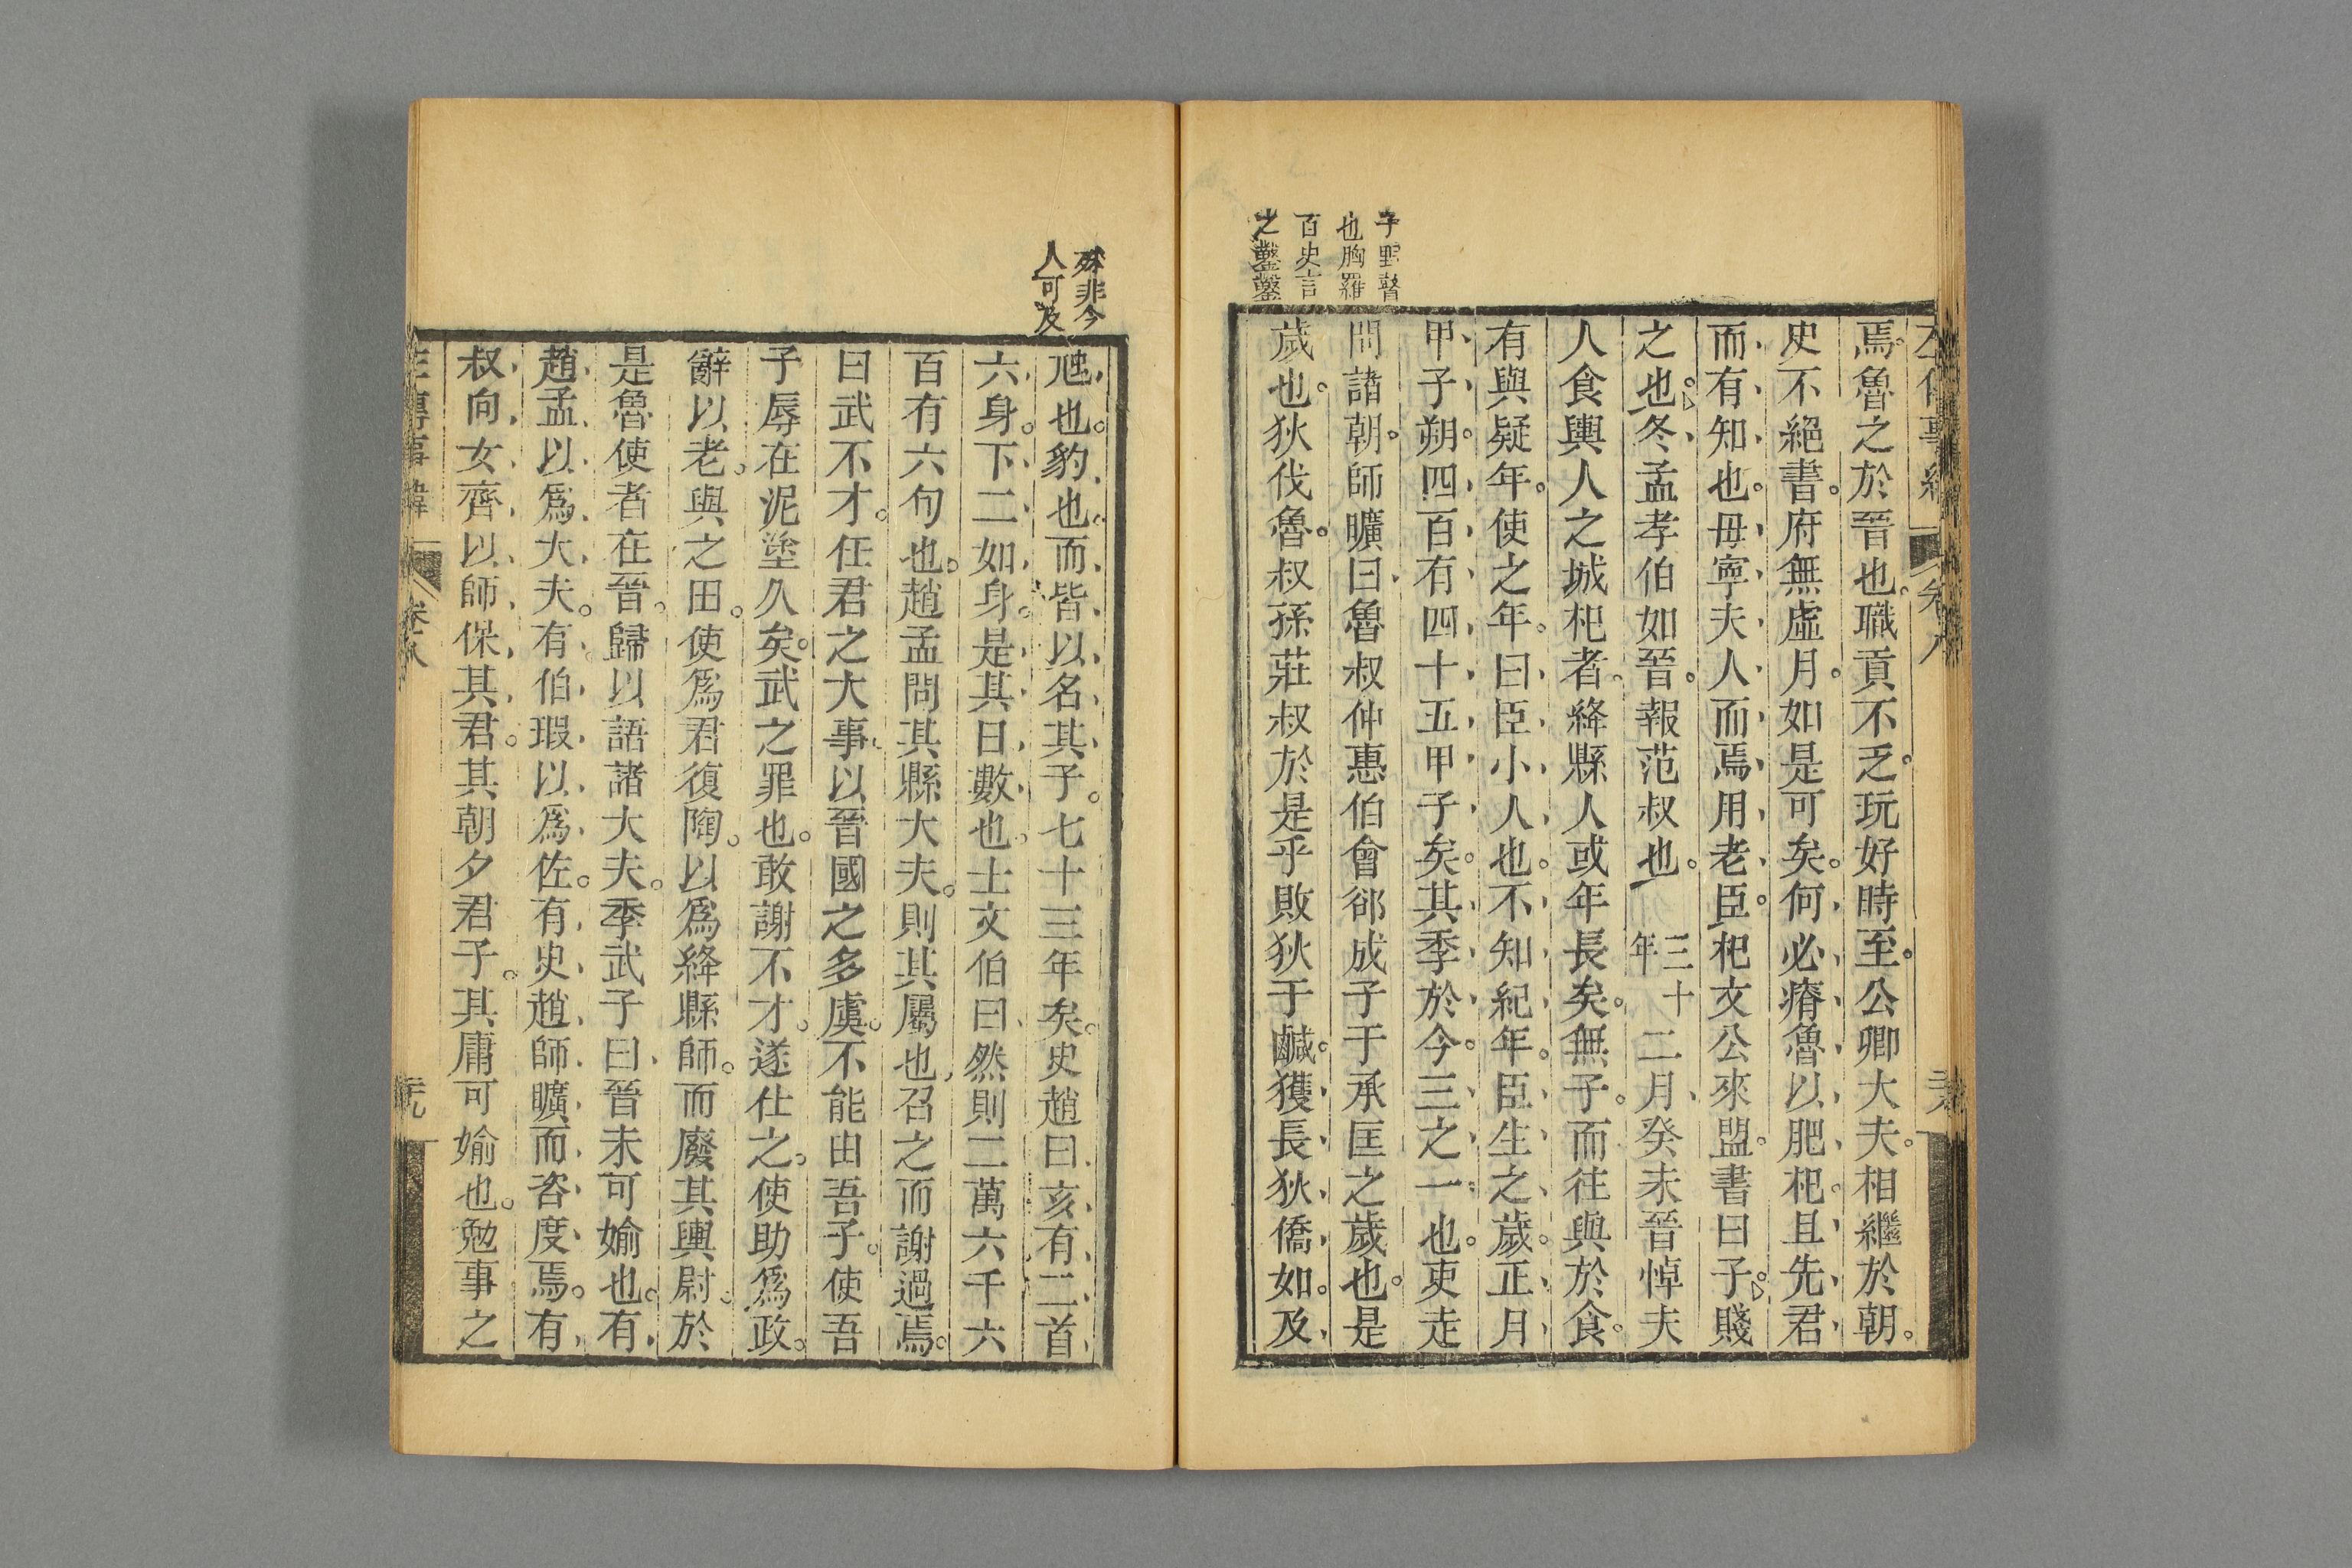 焉。魯之於晉也。職貢不乏。玩好時至。公卿大夫。相繼於朝。
史不絕書。府無虛月。如是可矣。何必瘠魯以肥杞。且先君
而有知也。毋寧夫人而焉用老臣。杞文公來盟。書曰子。賤
之也。冬、孟孝伯如晉。報范叔也。三十年二月、癸未晉悼夫
人食輿人之城杞者。絳縣人或年長矣。無子。而往與於食。
有與疑年。使之年。曰臣小人也。不知紀年。臣生之歲。正月
甲子朔。四百有四十五甲子矣。其季於今。三之一也。吏走
問諸朝。師曠曰魯叔仲惠伯會郤成子于承匡之歲也。是
歲也。狄伐魯。叔孫莊叔於是乎敗狄于鹹。獲長狄僑如。及
子野瞽
也胸羅
百史言
之鑿鑿
虺也。豹也。而皆以名其子。七十三年矣。史趙曰亥有二首
六身。下二如身。是其日數也。士文伯曰然則二萬六千六
百有六旬也。趙孟問其縣大夫。則其屬也、召之而謝過焉。
曰武不才。任君之大事以晉國之多虞。不能由吾子。使吾
子辱在泥塗久矣。武之罪也。敢謝不才。遂仕之。使助爲政。
辭以老。與之田。使爲君復陶。以爲絳縣師。而廢其輿尉於
是魯使者在晉。歸以語諸大夫。季武子曰晉未可媮也。有
趙孟以爲大夫。有伯瑕以爲佐。有史趙師曠而咨度焉。有
叔向女齊以師保其君。其朝多君子。其庸可媮也。勉事之
殊非今
人可及
左傳事緯
卷八